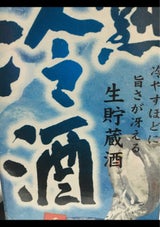 冷酒
冷やすほどに
旨さが冴える
生貯蔵酒